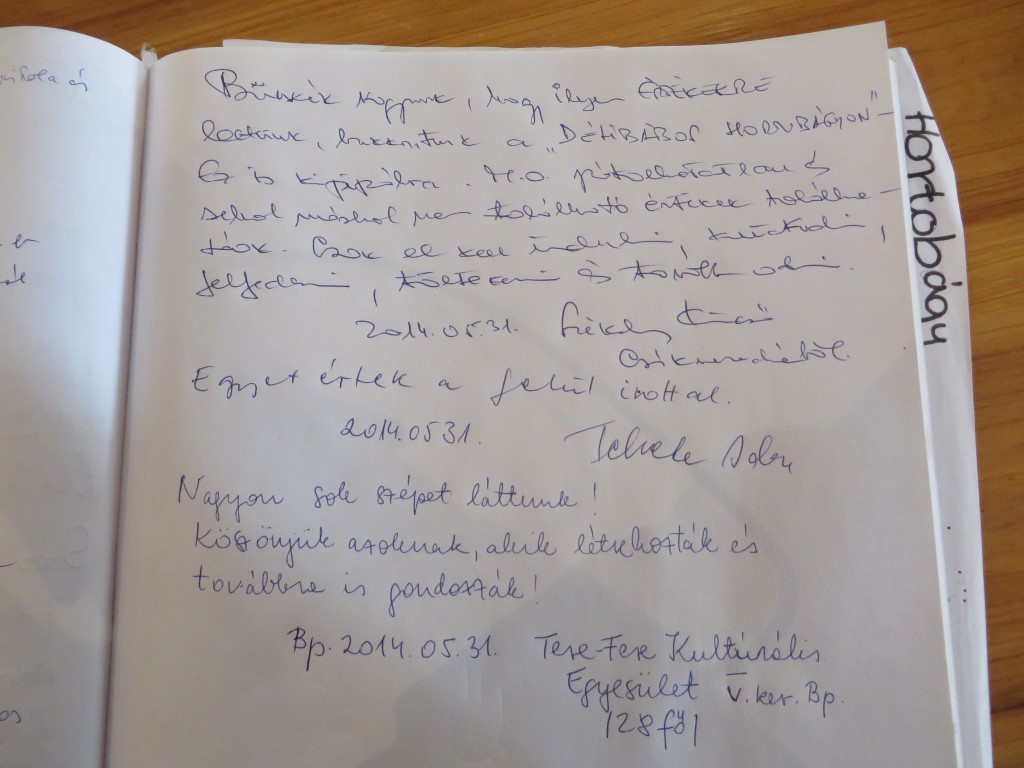 Büszkék vagyunk, hogy ilyen ÉRTÉKEKRE
leltünk, bukkantunk a „DÉLIBÁBOS HORTOBÁGYON"
Ez is . M.O. pótolhatatlan és
sehol máshol nem található értékek
Csak el kell indulni, kutatni,
felfedezni, és
2014.05.31. Székely
Csíkszeredából.
Egyet értek a felül írottal.
2014.05 31.
Nagyon sok szépet láttunk!
Köszönjük azoknak, akik létrehozták és
továbbra is gondozzák!
Bp. 2014.05.31. Tere-Fere Kultúrális
Egyesület V. ker. Bp.
/28 fő/
Hortobágy